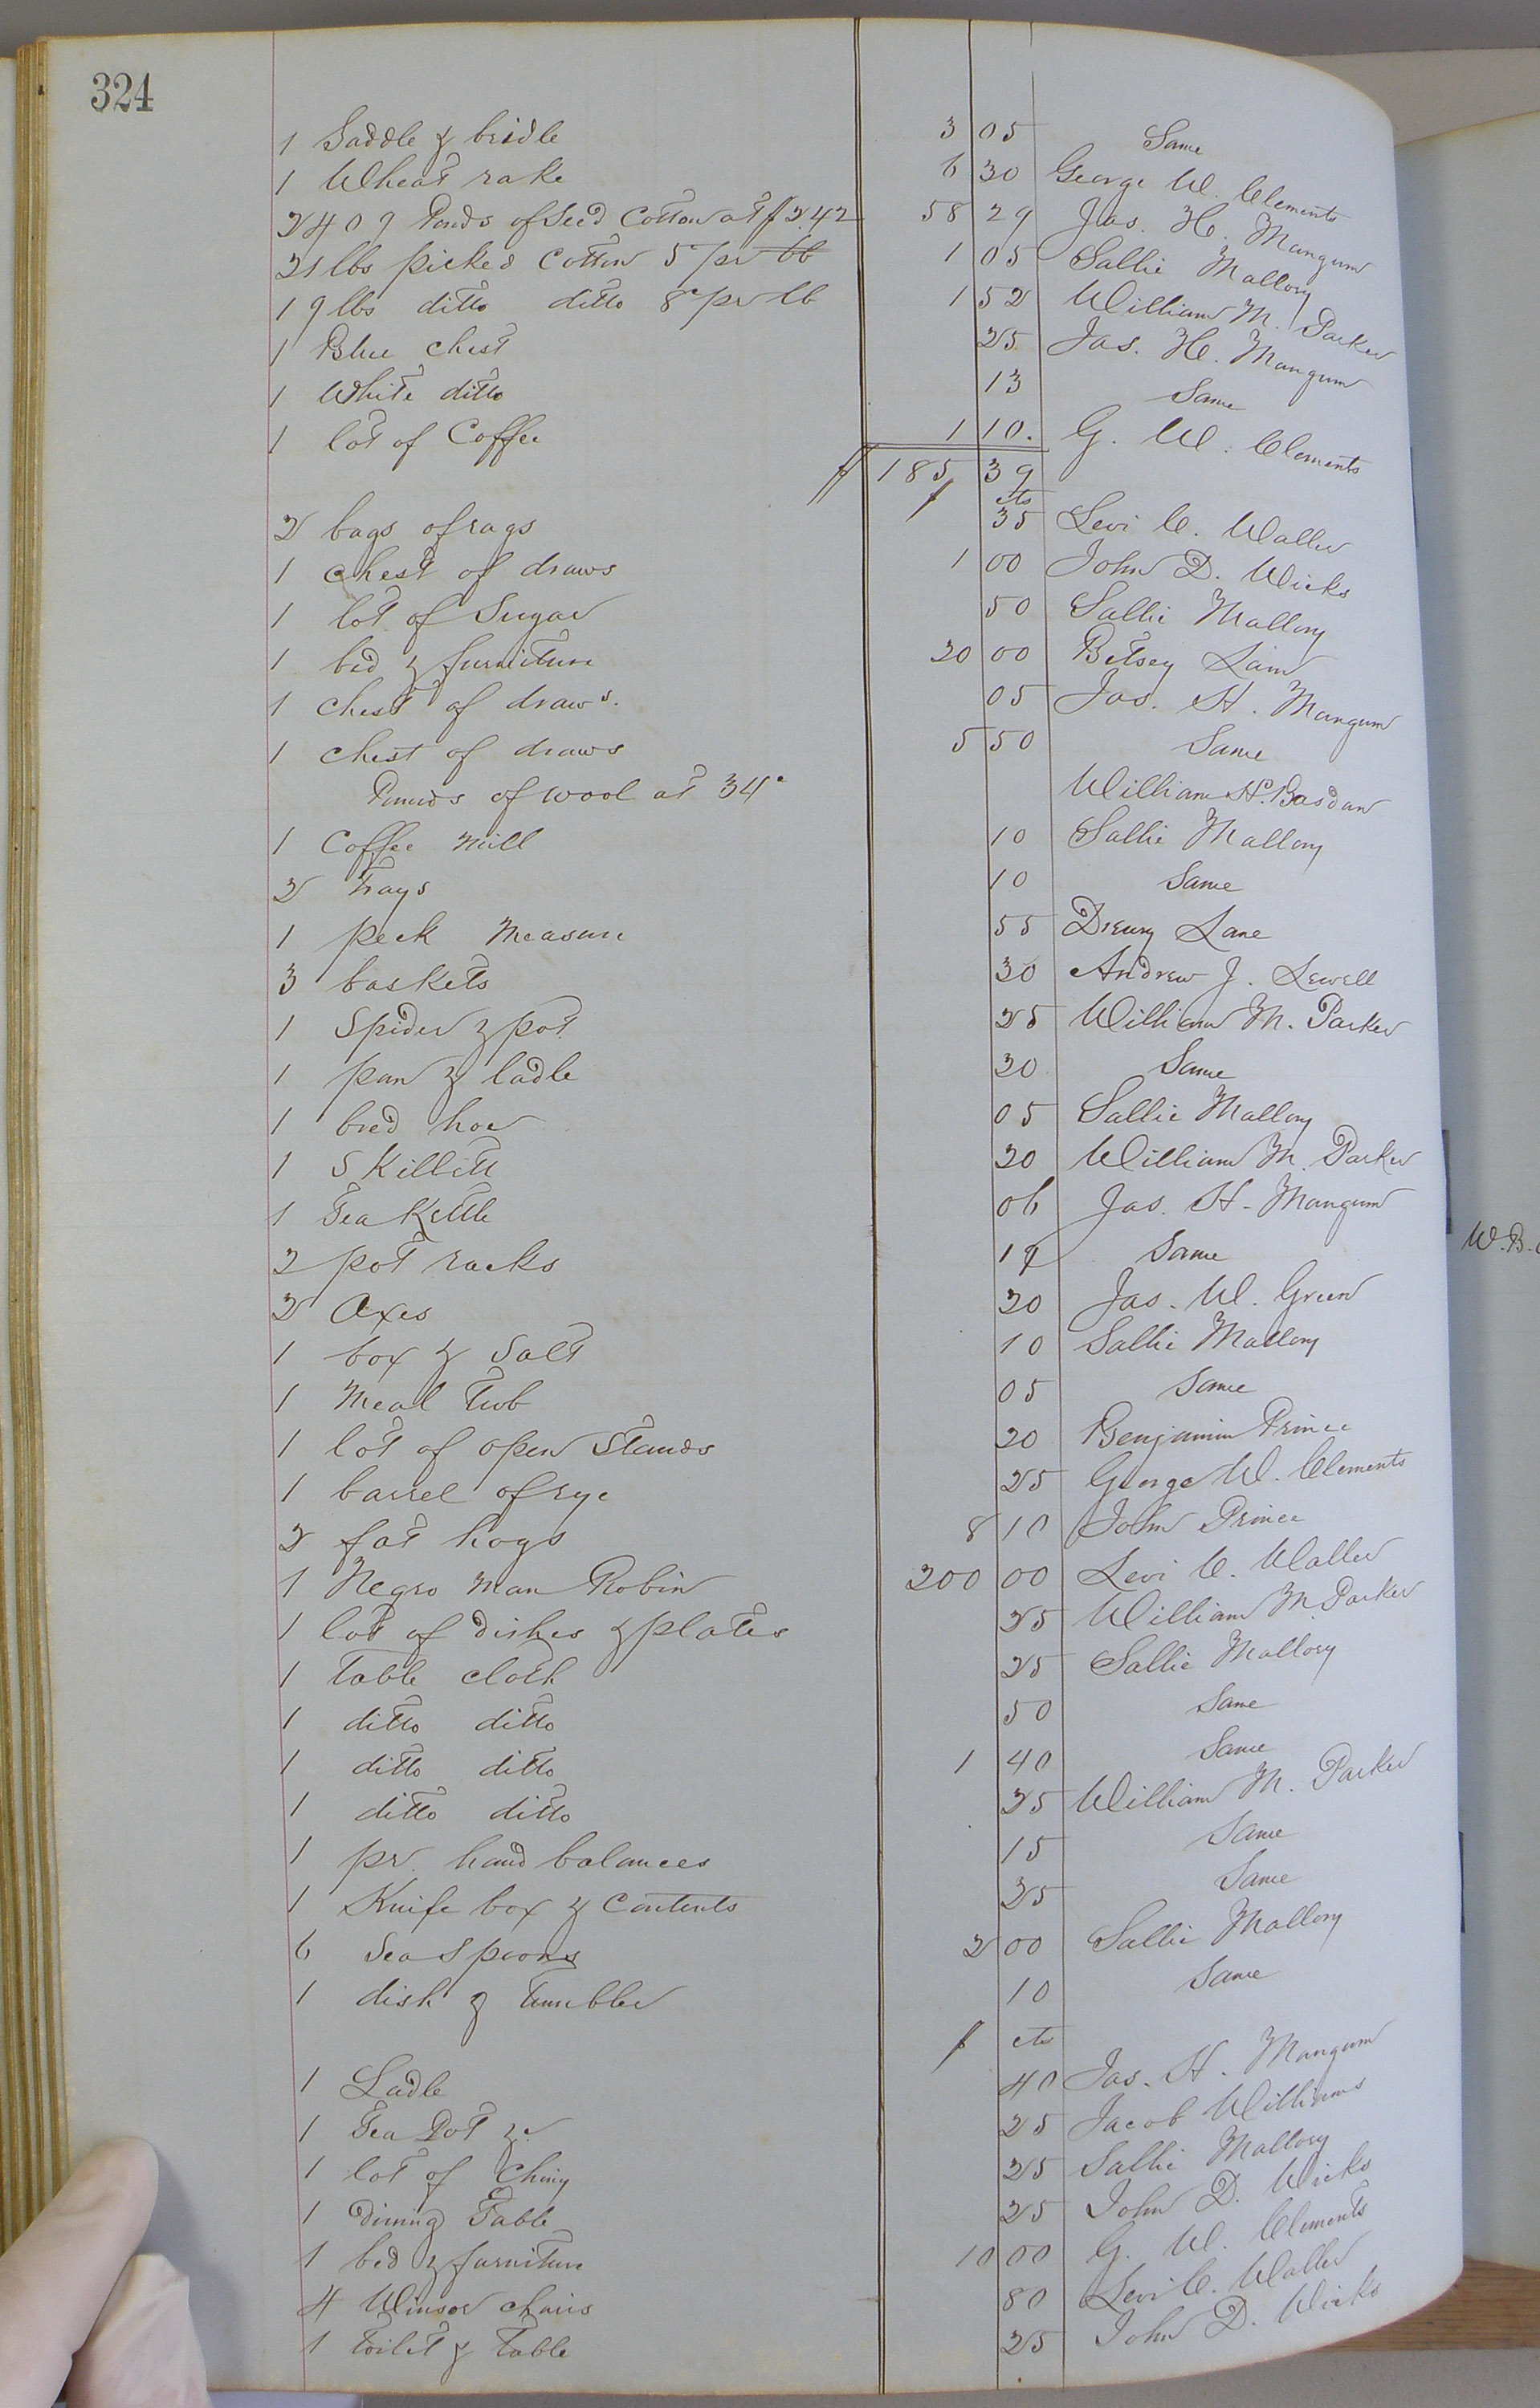 324
1 Saddle & bridle 3 05 Same
1 Wheat rake 6 30 George W. Clements
2409 Pounds of Seed Cotton at $2.42 58 29 Jas. H. Mangum
21 lbs picked Cotton 5c pr lb 1 05 Sallie Mallory
19 lbs ditto ditto 8c pr lb 1 52 William M. Parker
1 Blue chest 25 Jas. H. Mangum
1 White ditto 13 Same
1 lot of Coffee 1 10. G. W. Clements
$ 185 39
$ cts
2 bags of rags 35 Levi C. Waller
1 chest of draws 1 00 John D. Wicks
1 lot of Sugar 50 Sallie Mallory
1 bed & furniture 20 00 Betsey Lain
1 chest of draws. 05 Jas. H. Mangum
1 chest of draws 5 50 Same
Pounds of wool at 34c William H. Basdan
1 Coffee mill 10 Sallie Mallory
2 Trays 10 Same
1 peck Measure 55 Drewry Lane
3 baskets 30 Andrew J. Lewell
1 Spider & pot 25 William M. Parker
1 pan & ladle 30 Same
1 bred hoe 05 Sallie Mallory
1 Skillett 20 William M. Parker
1 Tea Kettle 06 Jas. H. Mangum
2 pot racks 19 Same
2 Axes 20 Jas. W. Green
1 box & Salt 10 Sallie Mallory
1 Meal Tub 05 Same
1 lot of open Stands 20 Benjamin Prince
1 barrel of rye 25 George W. Clements
2 fat hogs 8 10 John Prince
1 Negro man Robin 200 00 Levi C. Waller
1 lot of dishes & plates 25 William M. Parker
1 table cloth 25 Sallie Mallory
1 ditto ditto 50 Same
1 ditto ditto 1 40 Same
1 ditto ditto 25 William M. Parker
1 pr. hand balances 15 Same
1 Knife box & Contents 25 Same
6 Tea Spoons 2 00 Sallie Mallory
1 dish & tumbler 10 Same
$ cts
1 Ladle 40 Jas. H. Mangum
1 Tea Pot &c 25 Jacob Williams
1 lot of Chiny 25 Sallie Mallory
1 dining Table 25 John D. Wicks
1 bed & furniture 10 00 G. W. Clements
4 Winsor chairs 80 Levi C. Waller
1 toilet & Table 25 John D. Wicks
W. B.